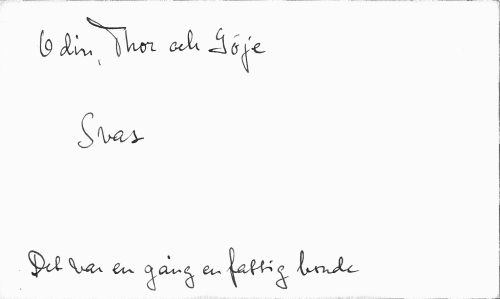 Odin, Thor och Göje
Svar
Det var en gång en fattig bonde